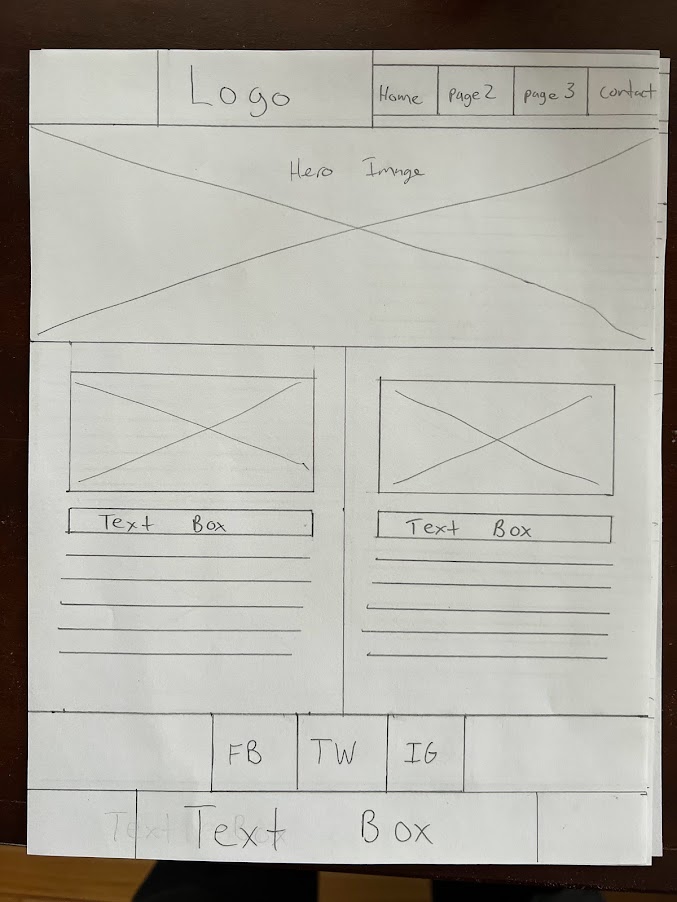 Logo
Home page 2 page 3 Contact
Hero Image
Text Box Text Box
FB TW IG
Text Box
Text Box